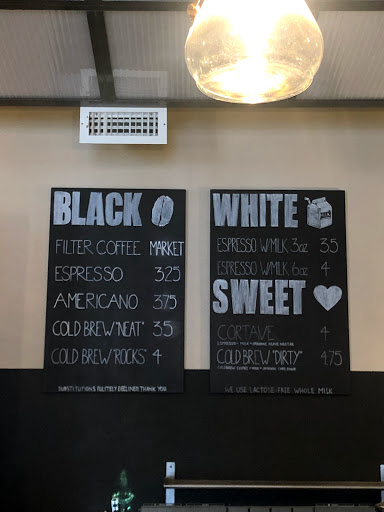 BLACK
FILTER COFFEE MARKET
ESPRESSO 3.25
AMERICANO 3.75
COLD BREW "NEAT" 3.5
COLD BREW "ROCKS" 4
SUBSTITUTIONS POLITELY DECLINED. THANK YOU
WHITE
ESPRESSO W/MILK 3oz 3.5
ESPRESSO W/MILK 6oz 4
SWEET
CORTAVE 4
ESPRESSO + MILK + ORGANIC AGAVE NECTAR
COLD BREW "DIRTY" 4.75
COLD BREW COFFEE + MILK + ORGANIC CANE SUGAR
WE USE LACTOSE-FREE WHOLE MILK